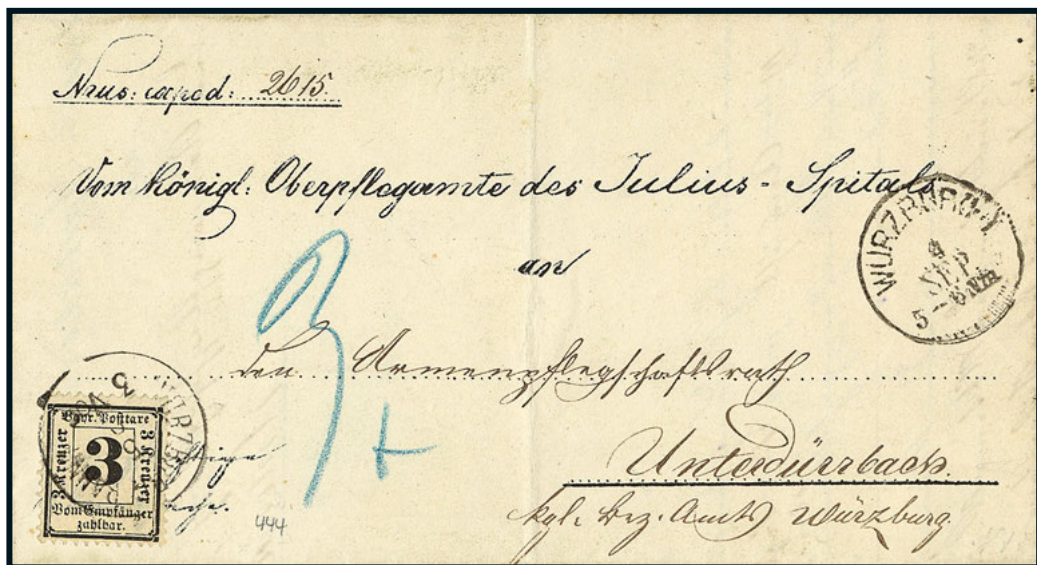 Nrus: exped: 2615.
Vom Königl: Oberpflegamte des Julius - Spitals
WÜRZBURG
4
SEP
5-6 NM
an
den Armenpflegschaftsrath
3
Bayr. Posttaxe
3 Kreuzer
3
3 Kreuzer
Vom Empfänger
zahlbar.
444
Unterdürrbach.
kgl. Bez. Amts Würzburg.